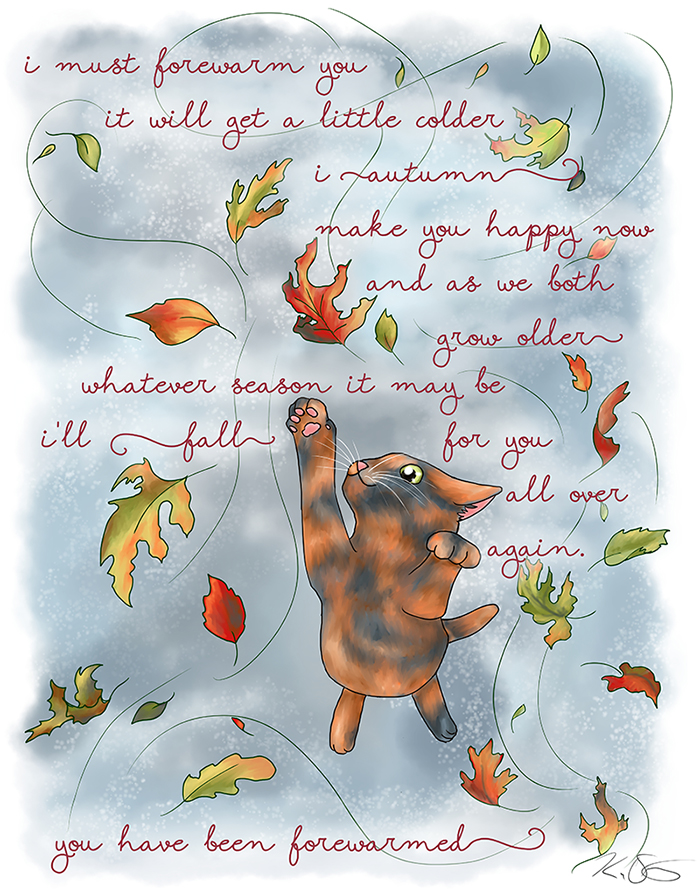 i must forewarm you
it will get a little colder
i autumn
make you happy now
and as we both
grow older
whatever season it may be
i'll fall for you
all over
again.
you have been forewarmed